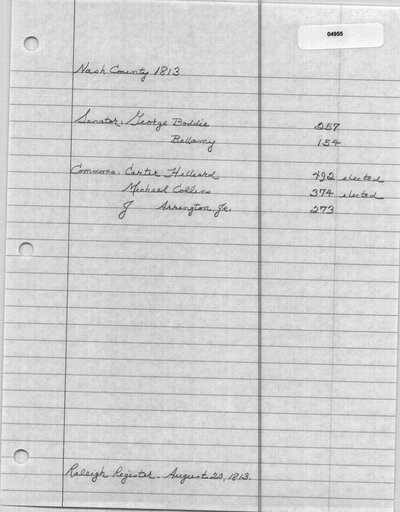 04955
Nash County 1813
Senator: George Boddie 257
Bellamy 154
Commons: Carter Hilliard 492 elected
Michael Collins 374 elected
J Arrington, Jr. 273
Raleigh Register. August 20, 1813.